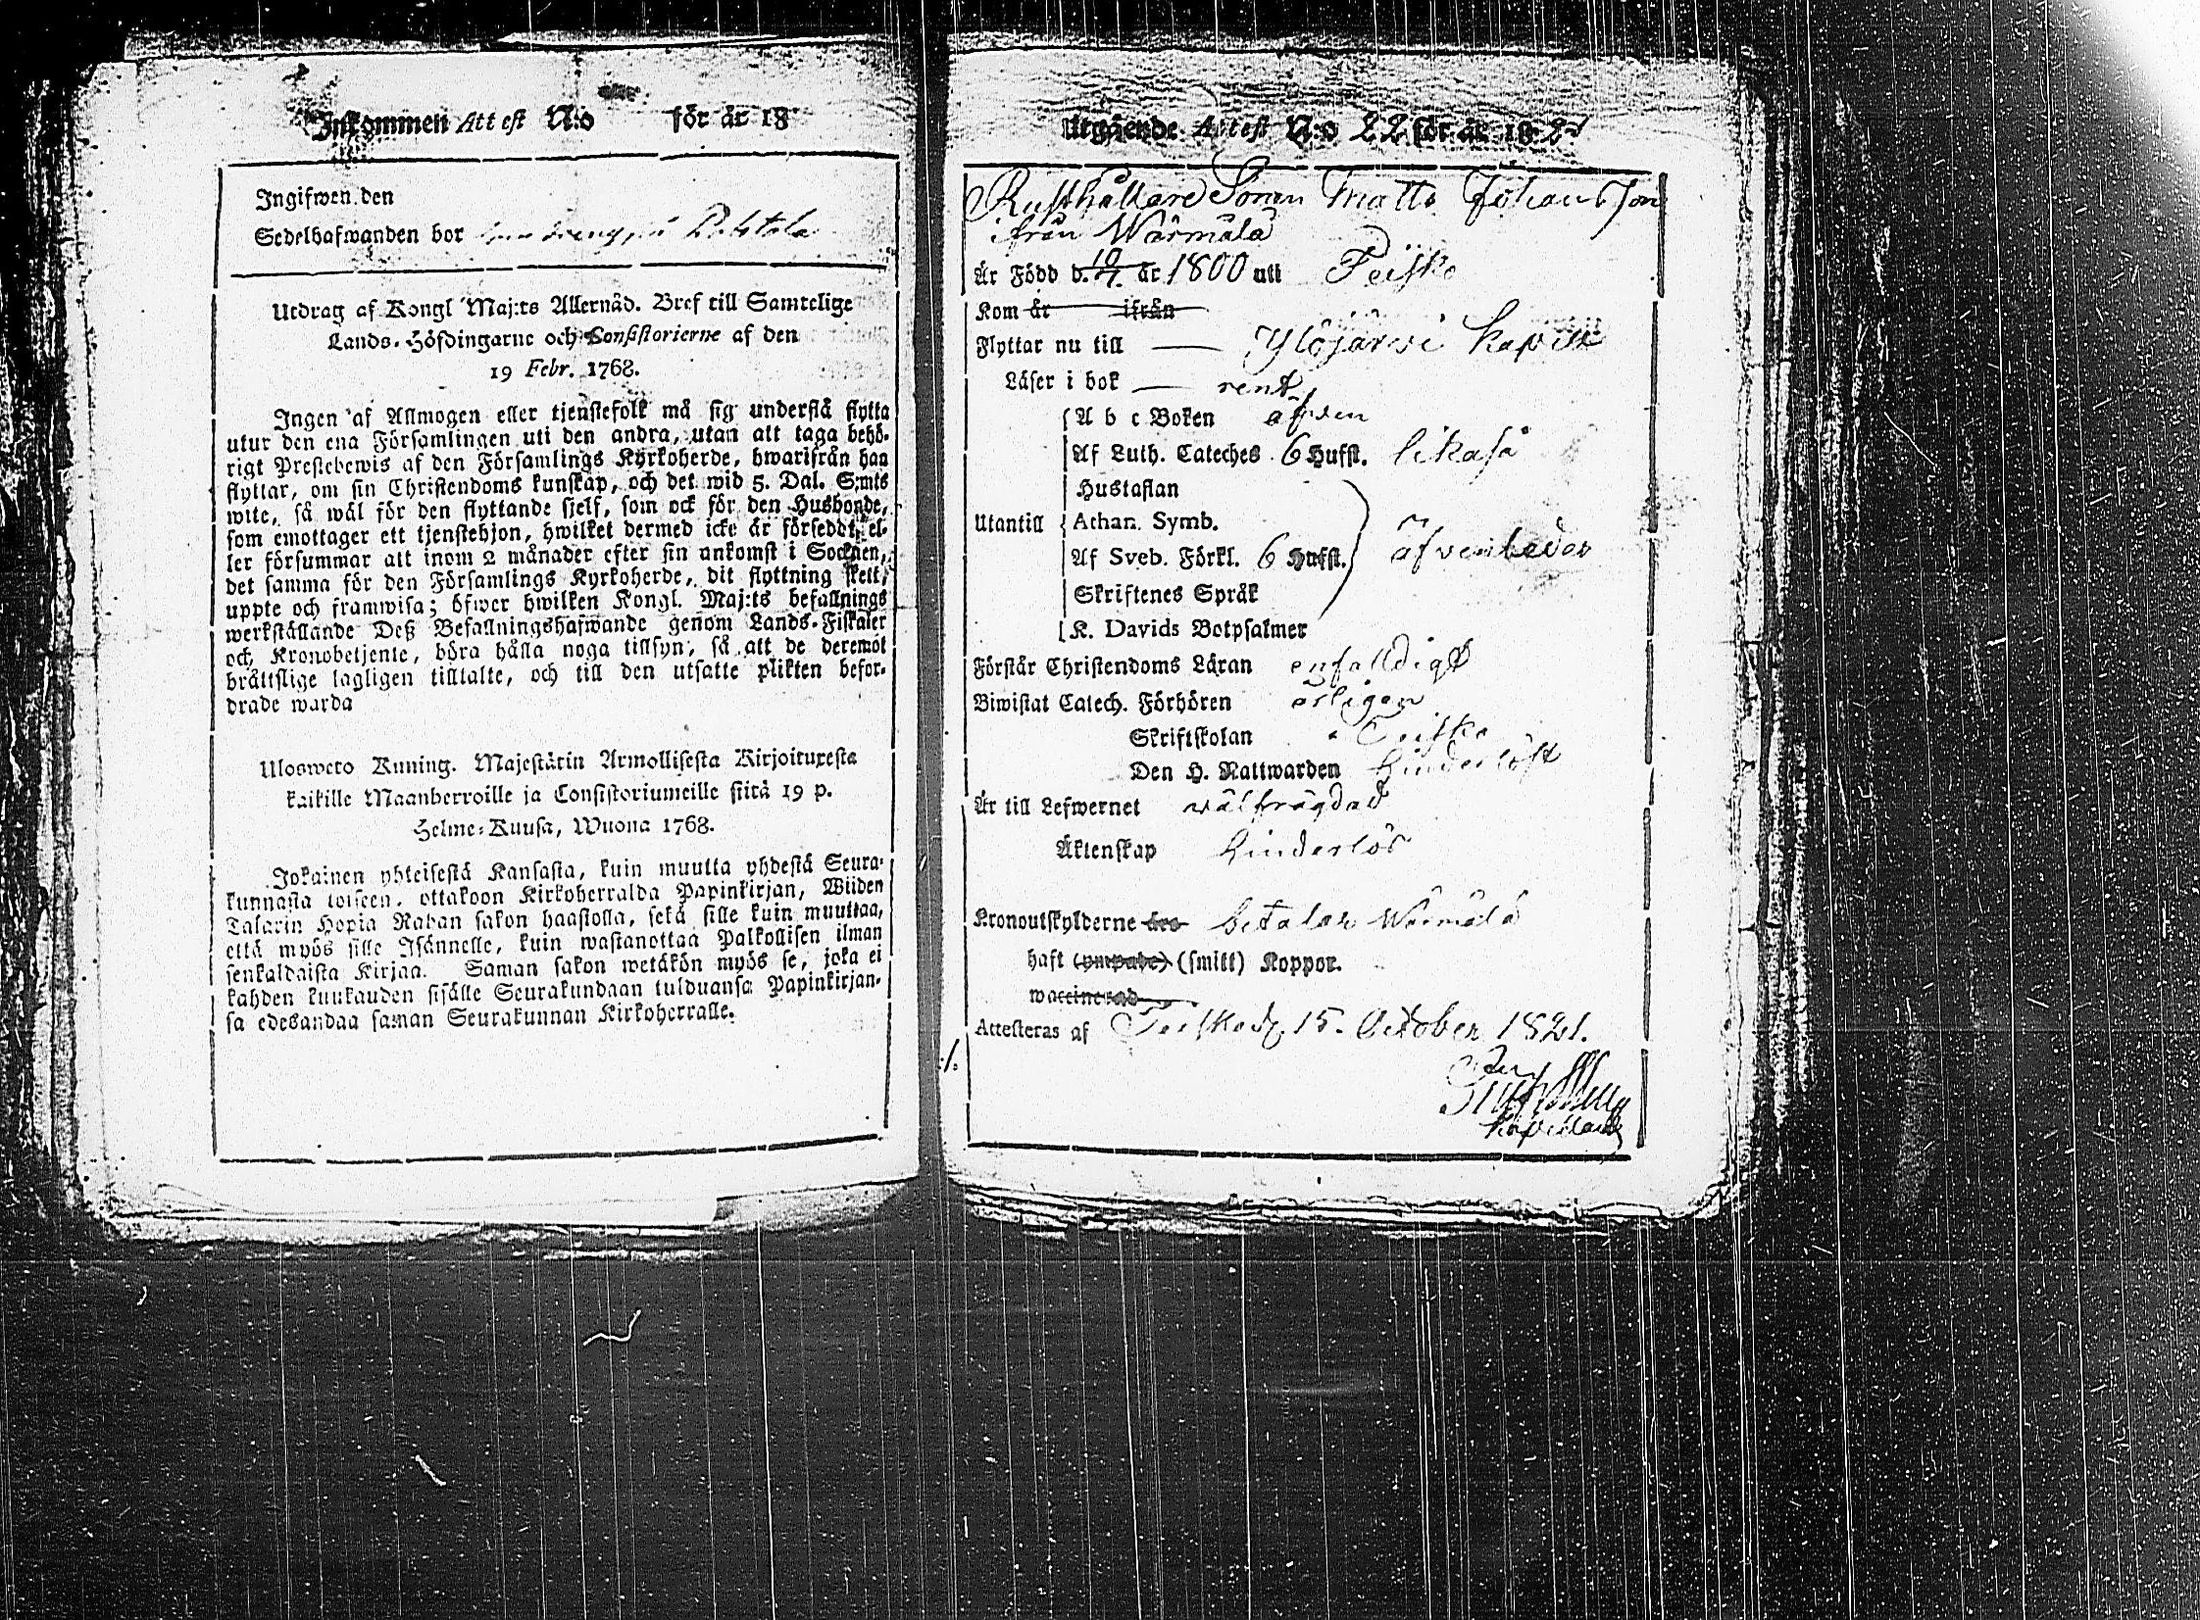 Inkommen Attest N:o för år 18
Ingifwen den
Sedelhafwanden bor
Utdrag af Kongl Maj:ts Allernåd. Bref till Samtelige
Lands-Höfdingarne och Consistorierne af den
19 Febr. 1768.
Ingen af Allmogen eller tjenstefolk må sig understå flytta
utur den ena Församlingen uti den andra, utan att taga behö-
rigt Prestebewis af den Församlings Kyrkoherde, hwarifrån han
flyttar, om sin Christendoms kunskap, och det wid 5. Dal. S:mts
wite, så wäl för den flyttande sjelf, som ock för den Husbonde,
som emottager ett tjenstehjon, hwilket dermed icke är försedt, el-
ler försummar att inom 2 månader efter sin ankomst i Socknen,
det samma för den Församlings Kyrkoherde, dit flyttning skett,
uppte och framwisa; öfwer hwilken Kongl. Maj:ts befallnings
werkställande Deß Befallningshafwande genom Lands-Fiskaler
och Kronobetjente, böra hålla noga tillsyn, så att de deremot
bråttslige lagligen tilltalte, och till den utsatte plikten befor-
drade warda
Ulosweto Kuning. Majestätin Armollisesta Kirjoituxesta
kaikille Maanherroille ja Consistoriumeille siitä 19 p.
Helme-Kuusa, Wuona 1768.
Jokainen yhteisestä Kansasta, kuin muutta yhdestä Seura-
kunnasta toiseen, ottakoon Kirkoherralda Papinkirjan, Wiiden
Talarin Hopia Rahan sakon haastolla, sekä sille kuin muuttaa,
että myös sille Isännelle, kuin wastanottaa Palkollisen ilman
senkaldaista Kirjaa. Saman sakon wetäkön myös se, joka ei
kahden kuukauden sisälle Seurakundaan tulduansa Papinkirjan-
sa edesandaa saman Seurakunnan Kirkoherralle.
Utgående Attest N:o 22 för år 182
Rusthållare Sonen Matts Johansson
ifrån Wärmälä
År Född d. 19/7. år 1800 uti Teisko
Kom år ifrån
Flyttar nu till Ylöjärwi Kapell
Läser i bok rent
A b c Boken äfven
Af Luth. Cateches 6 Hufst. likaså
Hustaflan
Utantill Athan. Symb.
Af Sveb. Förkl. 6 Hufst. äfvenledes
Skriftenes Språk
K. Davids Botpsalmer
Förstår Christendoms Läran enfalldigt
Biwistat Catech. Förhören årligen
Skriftskolan i Teisko
Den H. Nattwarden hinderlöst
Är till Lefwernet wälfrägdad
Äktenskap hinderlös
Kronoutskylderne äro betalar Wärmälä
haft (ympade) (smitt) Koppor.
waccinerad
Attesteras af Teisko d. 15. October 1821.
Kapellan